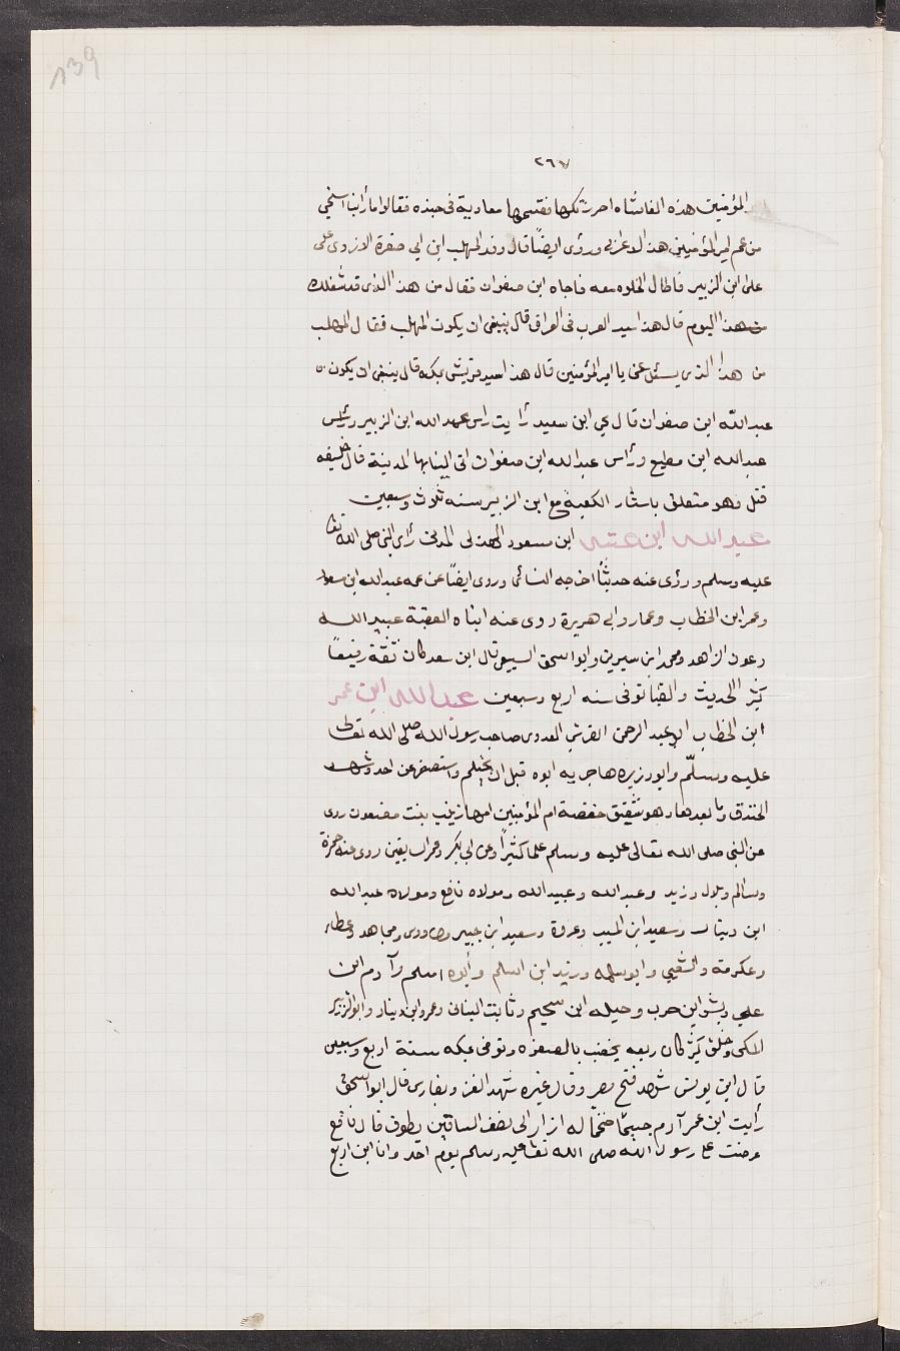 139
٢٦٧
المؤمنين هذه الفاشاه احرزتكها فقسمها معاوية فى جنده فقالوا ما رأينا اسخى
من عم امير المؤمنين هذا الاعرابى وروى ايضًا قال وفد المهلب ابن ابى صفرة الازدى على
على ابن الزبير فاطال الخلوه معه فاجاه ابن صفوان فقال من هذا الذى قد شغلك
منذ هذا اليوم قال هذا سيد العرب فى العراق قال ينبغى ان يكون المهلب فقال المهلب
من هذا الذى يسئل عنى يا امير المؤمنين قال هذا سيد قريش بمكه قال ينبغى ان يكون
عبد الله ابن صفوان قال يحى ابن سعيد رأيت راس عبد الله ابن الزبير ورأس
عبد الله ابن مطيع ورأس عبد الله ابن صفوان اتى الينا بها المدينة قال خليفه
قتل وهو متعلق باستار الكعبة مع ابن الزبير سنه ثلاث وسبعين
عبد الله ابن عتبه ابن مسعود الهذلى المدنى رأى النبى صلى الله تعا
عليه وسلم وروى عنه حديثًا اخرجه النسائى وروى ايضًا عن عمه عبد الله ابن مسعود
وعمر ابن الخطاب وعمار وابى هريرة روى عنه ابناه الفقيه عبيد الله
وعون الزاهد ومحمد ابن سيرين وابو اسحق السبيعى قال ابن سعد كان ثقة رفيعًا
كثير الحديث والفتيا توفى سنه اربع وسبعين عبد الله ابن عمر
ابن الخطاب ابو عبد الرحمن القرشى العدوى صاحب رسول الله صلى الله تعالى
عليه وسلّم وابو وزيره هاجر به ابوه قبل ان يحتلم واستصغر عن احد وشهد
الخندق وما بعدها وهو شقيق حفصة ام المؤمنين امها زينب بنت مضعون روى
عن النبى صلى الله تعالى عليه وسلم علما كثيرًا وعن ابى بكر وعمر السابقين روى عنه حمزة
وسالم وبلال وزيد وعبد الله وعبيد الله ومولاه نافع ومولاه عبد الله
ابن دينار وسعيد ابن المسيب وعروة وسعيد ابن جبير وطاووس ومجاهد وعطاء
وعكرمة والشعبى وابو سلمه وزيد ابن اسلم وأبوه اسلم وآدم ابن
على وبشر ابن حرب وجبله ابن سحيم وثابت البنانى وعمرو ابن دينار وابو الزبير
المكى وخلق كثير كان ربعه يخضب بالصفره وتوفى بمكه سنة اربع وسبعين
قال ابن يونس شهد فتح مصر وقال غيره شهد الفتن وبفارس قال ابو اسحق
رأيت ابن عمر آدم جسيمًا ضخمًا له ازار الى نصف الساقين يطوف قال نافع
عرضت على رسول الله صلى الله تعا عليه وسلم يوم احد وانا ابن اربع